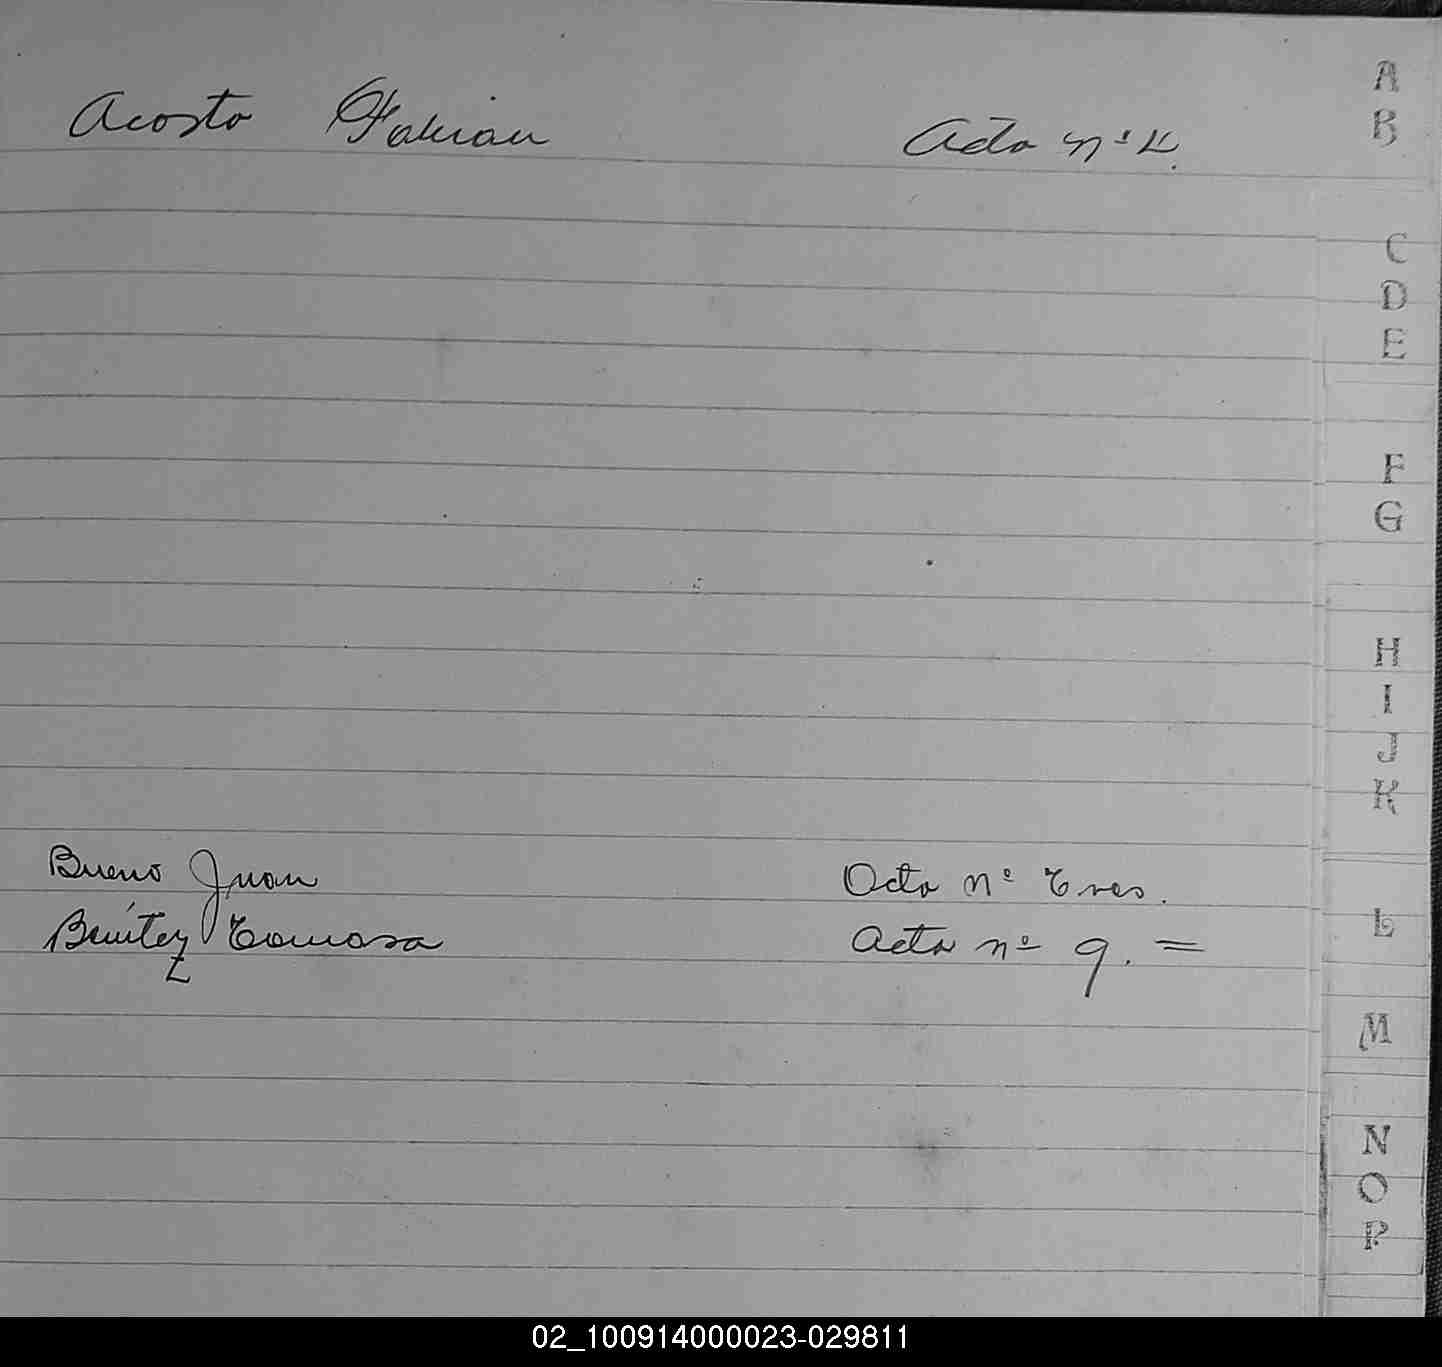 Acosta Fabian Acta nº
A
B
C
D
E
F
G
H
I
J
K
Bueno Juan Acta nº Tres.
L
Benítez Tomasa Acta nº 9. =
M
N
O
P
02_100914000023-029811